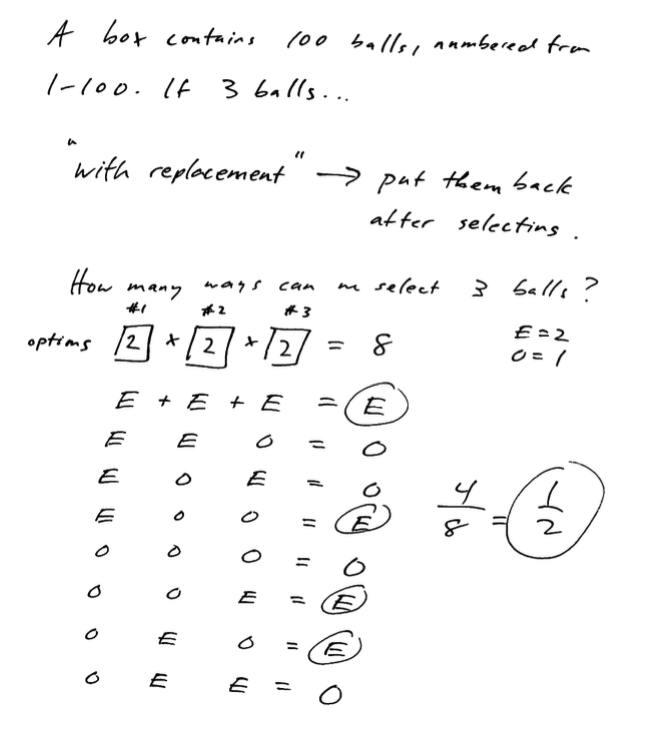 A box contains 100 balls, numbered from
1-100. If 3 balls...
"with replacement" → put them back
after selecting.
How many ways can we select 3 balls?
#1 #2 #3
options 2 × 2 × 2 = 8
E = 2
O = 1
E + E + E = E
E E O = O
E O E = O
E O O = E
4/8 = 1/2
O O O = O
O O E = E
O E O = E
O E E = O